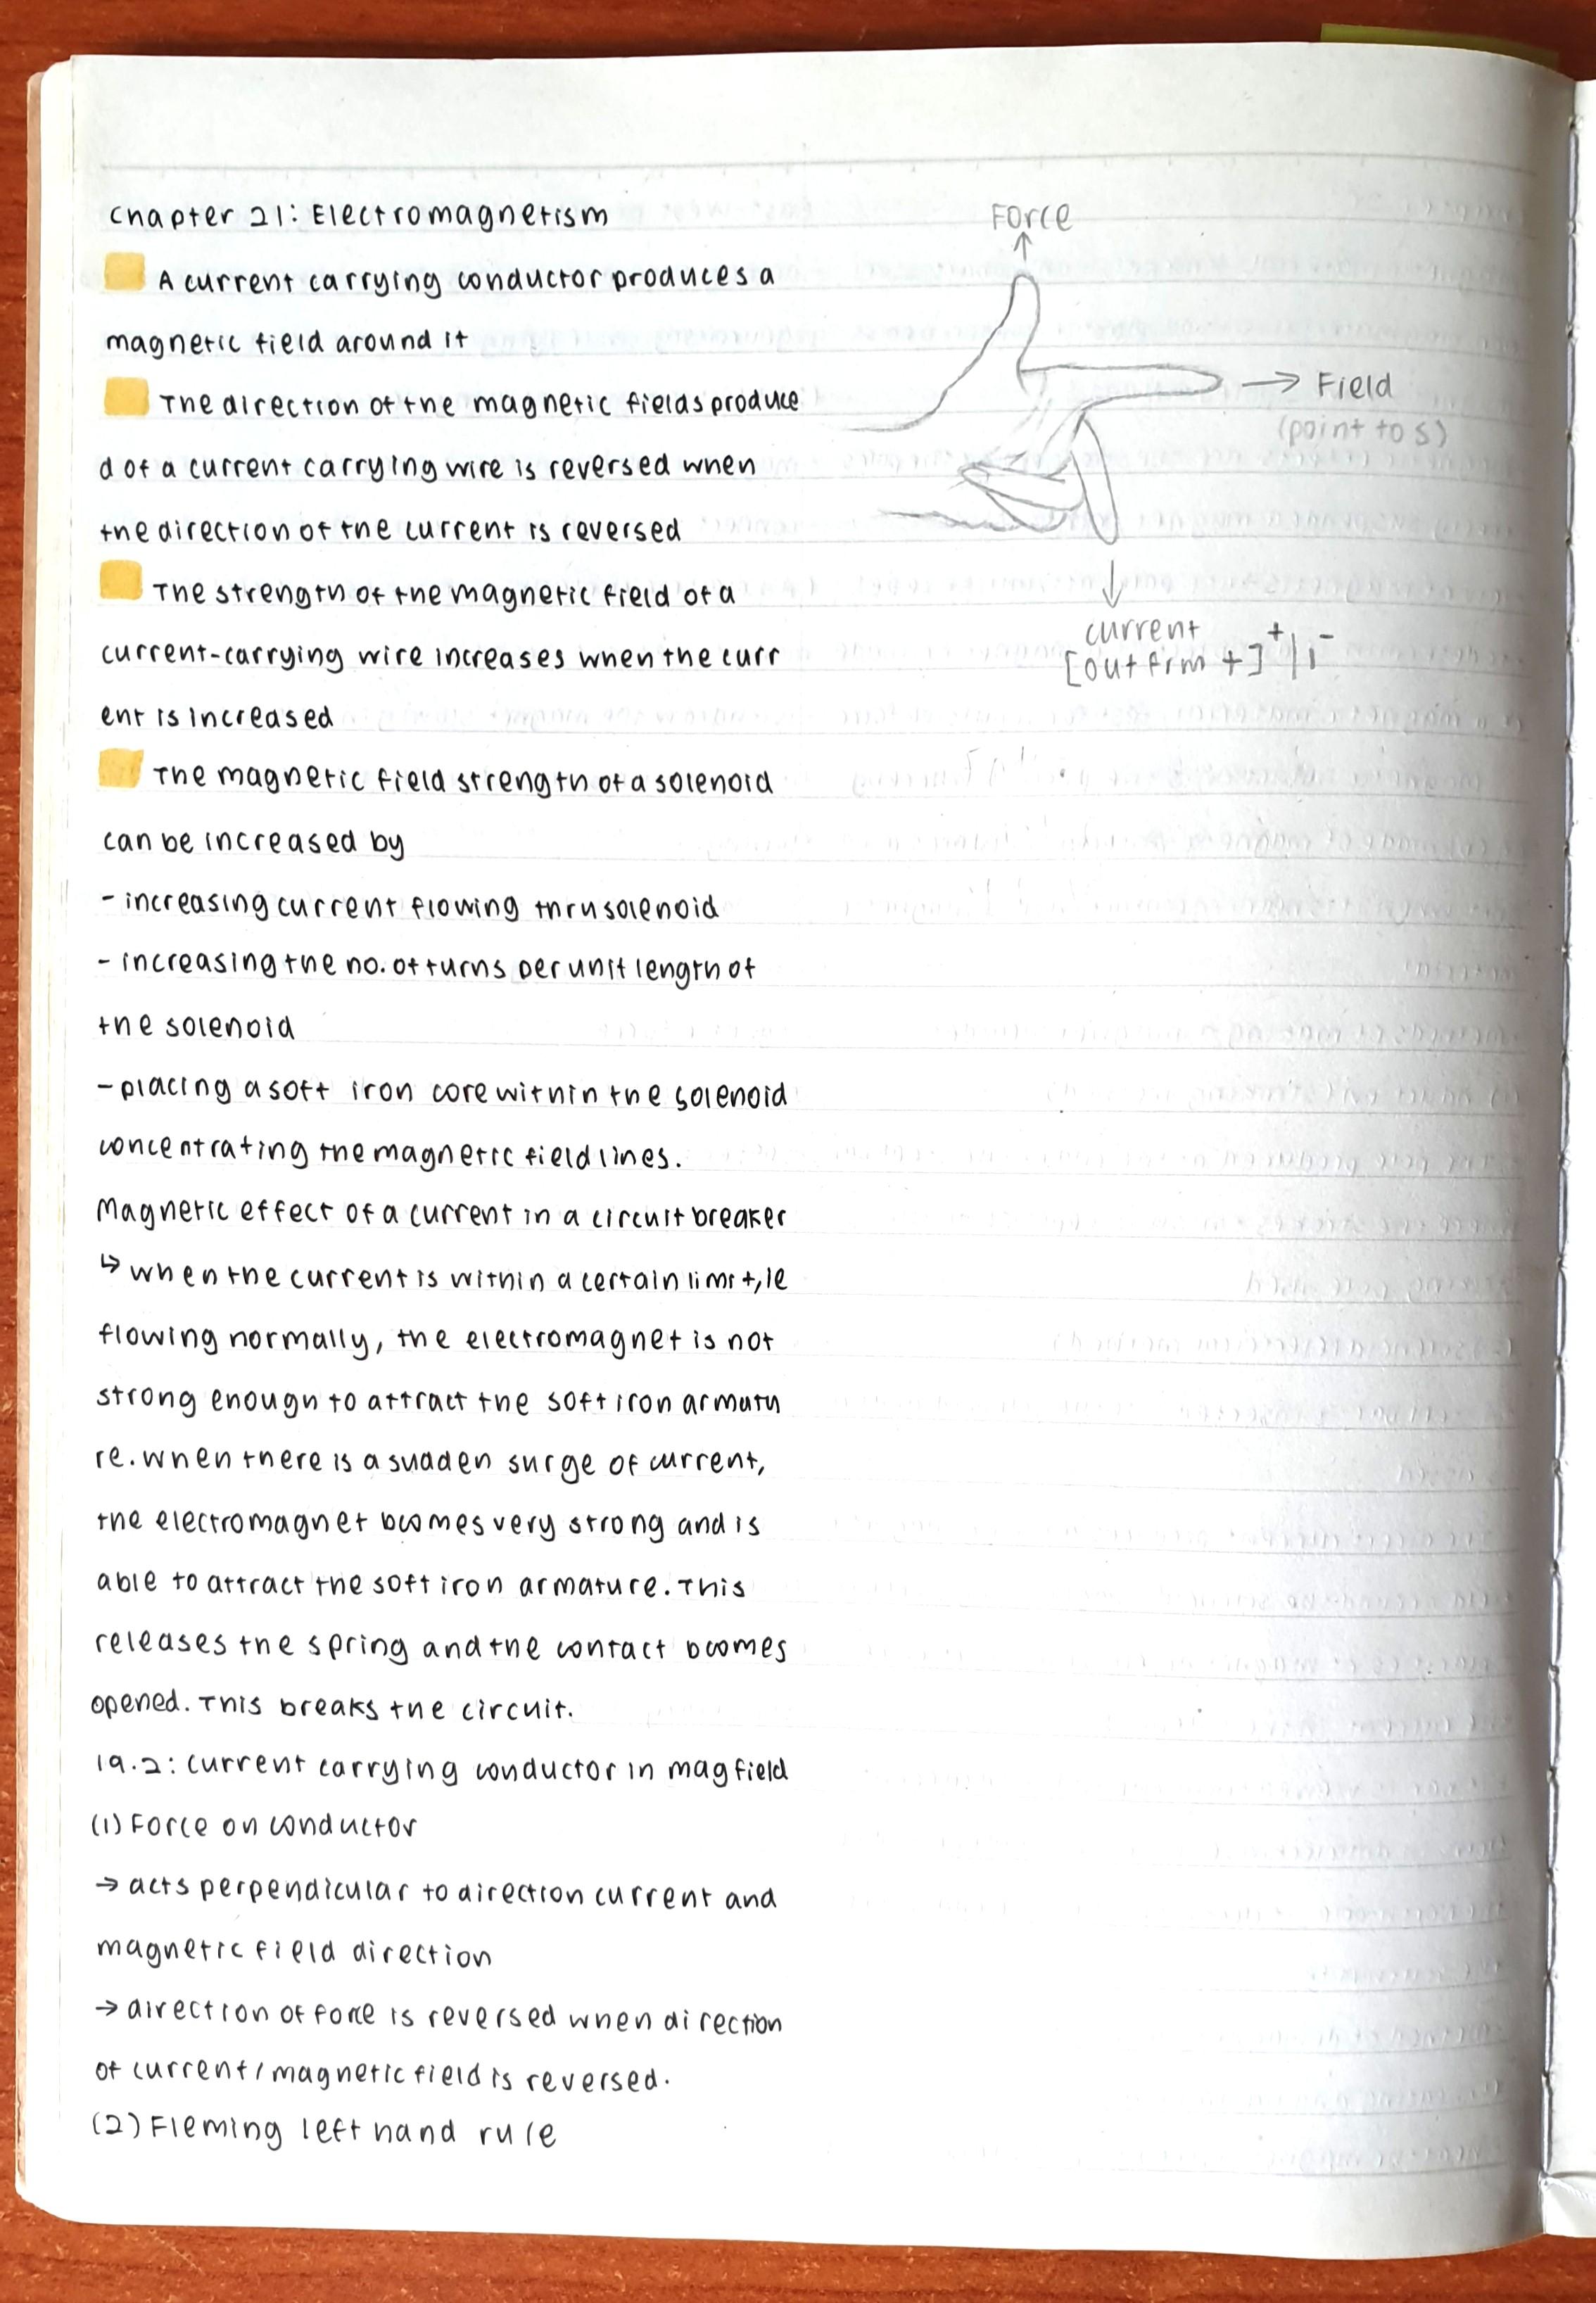 Chapter 21: Electromagnetism
A current carrying conductor produces a
magnetic field around it
The direction of the magnetic fields produce
d of a current carrying wire is reversed when
the direction of the current is reversed
The strength of the magnetic field of a
current-carrying wire increases when the curr
ent is increased
The magnetic field strength of a solenoid
can be increased by
- increasing current flowing thru solenoid
- increasing the no. of turns per unit length of
the solenoid
- placing a soft iron core within the solenoid
concentrating the magnetic field lines.
Magnetic effect of a current in a circuit breaker
↳ when the current is within a certain limit, ie
flowing normally, the electromagnet is not
strong enough to attract the soft iron armatu
re. when there is a sudden surge of current,
the electromagnet becomes very strong and is
able to attract the soft iron armature. This
releases the spring and the contact becomes
opened. This breaks the circuit.
19.2: current carrying conductor in mag field
(1) Force on conductor
→ acts perpendicular to direction current and
magnetic field direction
→ direction of force is reversed when direction
of current/magnetic field is reversed.
(2) Fleming left hand rule
Force
↑
→ Field
(point to S)
↓
current
[out frm +] +|ı-